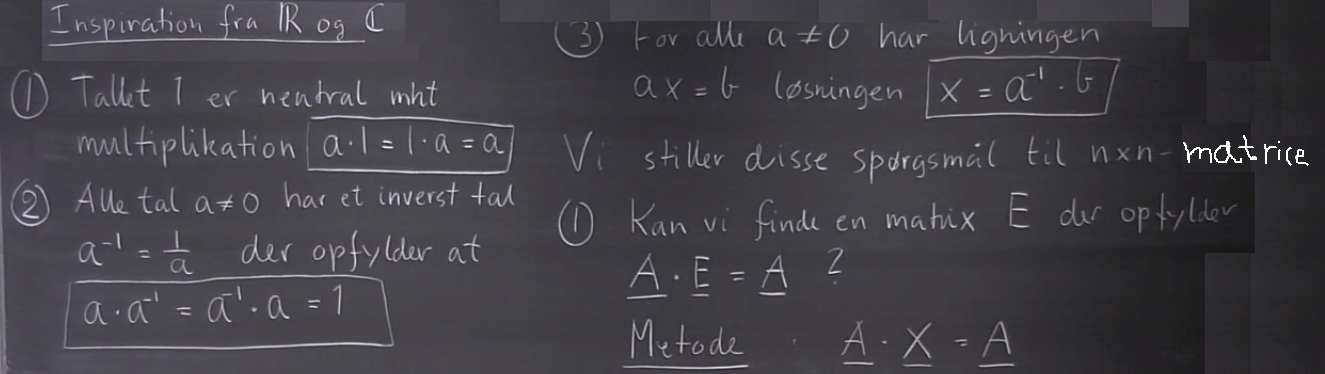 Inspiration fra ℝ og ℂ
① Tallet 1 er neutral mht
multiplikation a·1 = 1·a = a
② Alle tal a≠0 har et inverst tal
a⁻¹ = 1/a der opfylder at
a·a⁻¹ = a⁻¹·a = 1
③ For alle a≠0 har ligningen
ax = b løsningen x = a⁻¹·b
Vi stiller disse spørgsmål til n×n-matrice
① Kan vi finde en matrix E der opfylder
A·E = A ?
Metode: A·X = A